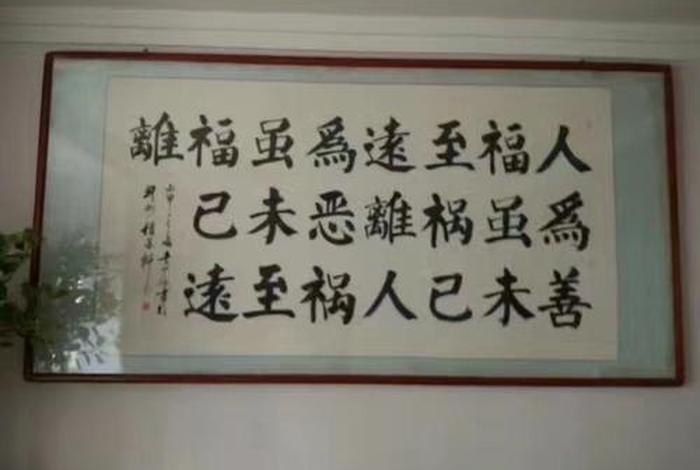 人爲善
福虽未
至祸己
遠離人
爲恶祸
虽未至
福己遠
離